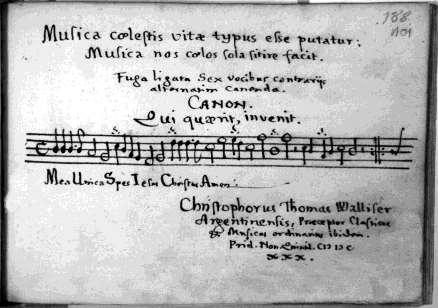 188
Musica cœlestis vitæ typus esse putatur:
Musica nos cœlos sola sitire facit.
Fuga ligata sex vocibus contrarijs
alternatim canenda.
CANON.
Qui quærit, invenit.
Mea Unica Spes Iesus Christus Amen.
Christophorus Thomas Walliser
Argentinensis, Præceptor Classicus
& Musicus ordinarius ibidem.
Prid. Non.
xxx.